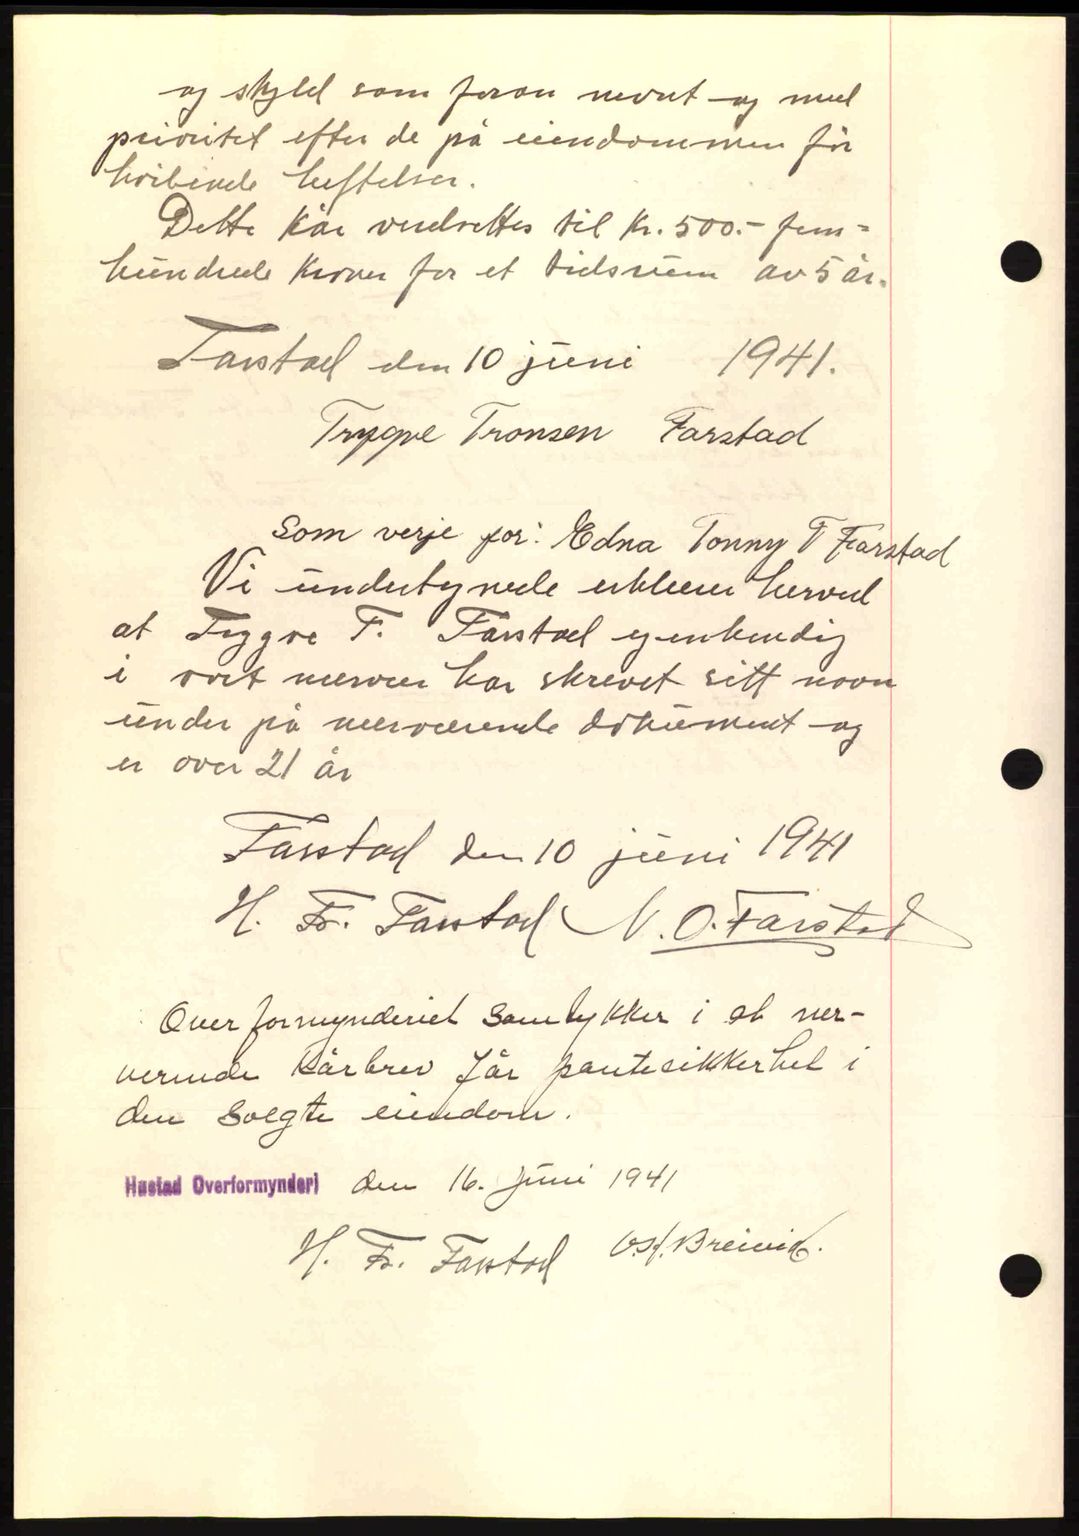 og skyld som foran nevnt og med
prioritet efter de på eiendommen før
hvilende heftelser.
Dette kår verdsettes til kr. 500.- fem-
hundrede kroner for et tidsrum av 5 år.
Farstad den 10 juni 1941.
Trygve Tronsen Farstad
Som verje for: Edna Tonny T Farstad
Vi undertegnede erklærer herved
at Trygve T. Farstad egenhendig
i vort nærvær har skrevet sitt navn
under på nærværende dokument og
er over 21 år
Farstad den 10 juni 1941
H. Fr. Farstad N. O. Farstad
Overformynderiet samtykker i at nær-
verende kårbrev får pantesikkerhet i
den solgte eiendom.
Hustad Overformynderi den 16. juni 1941
H. Fr. Farstad Osf. Breivik.